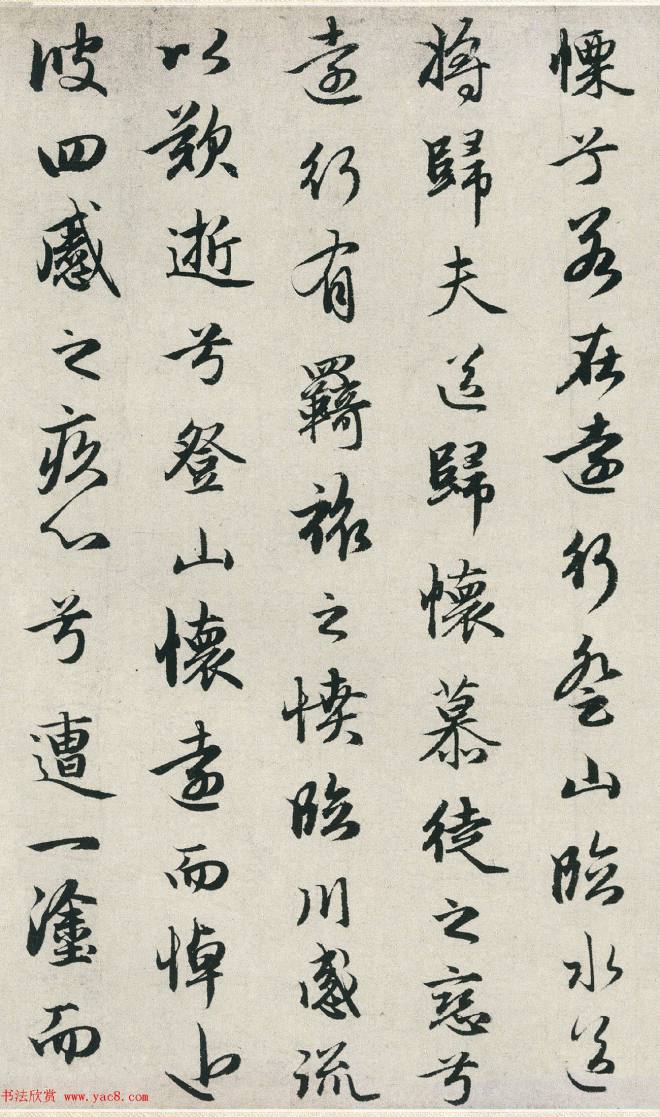 慄兮若在遠行登山臨水送
將歸夫送歸懷慕徒之戀兮
遠行有羇旅之憤臨川感流
以歎逝兮登山懷遠而悼近
彼四慼之疚心兮遭一塗而
书法欣赏 www.yac8.com